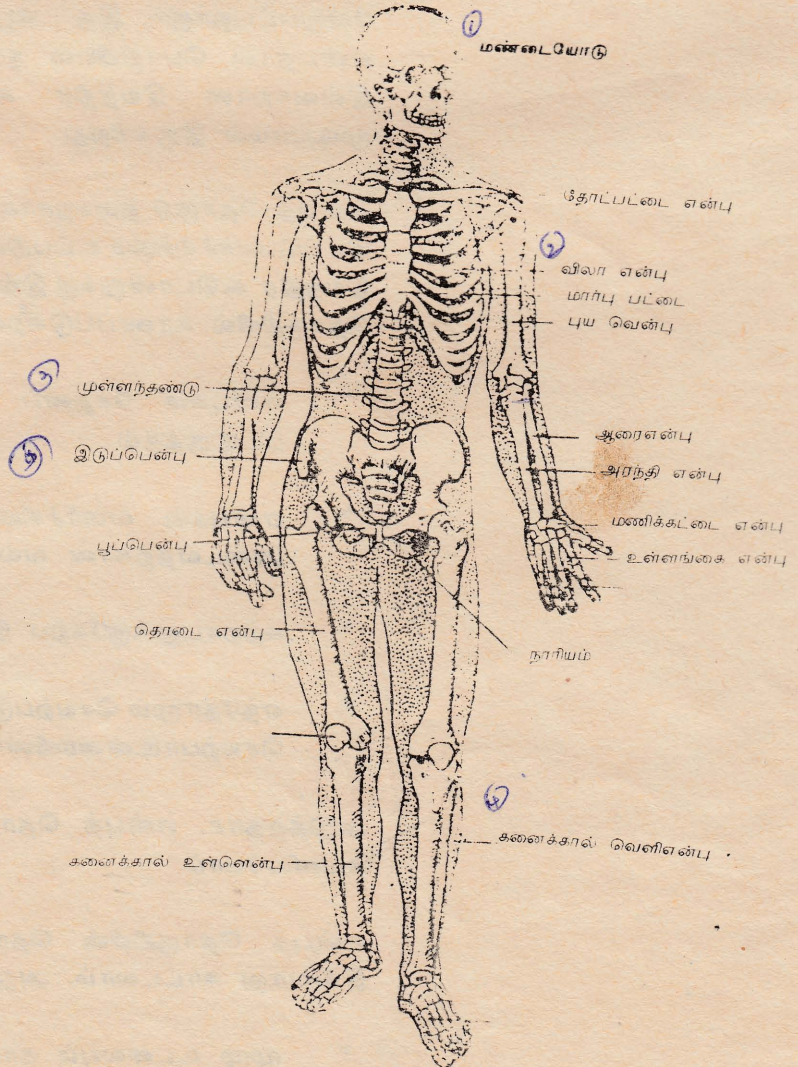 1
மண்டையோடு
தோட்பட்டை என்பு
2
விலா என்பு
மார்பு பட்டை
புய வென்பு
3
முள்ளந்தண்டு
ஆரைஎன்பு
இடுப்பென்பு
அரந்தி என்பு
மணிக்கட்டை என்பு
பூப்பென்பு
உள்ளங்கை என்பு
தொடை என்பு
நாரியம்
4
கனைக்கால் வெளிஎன்பு
கனைக்கால் உள்ளென்பு